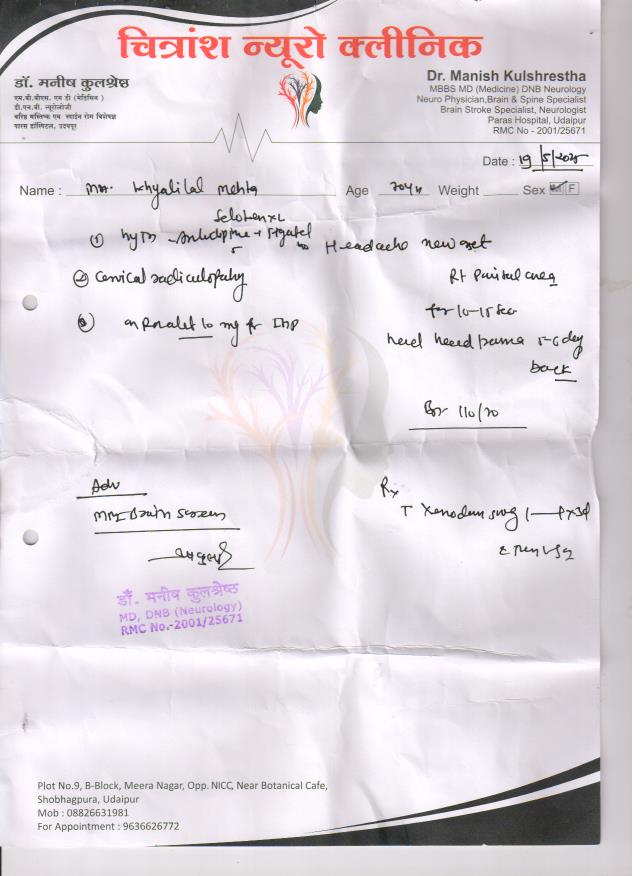 चित्रांश न्यूरो क्लीनिक
डॉ. मनीष कुलश्रेष्ठ
एम.बी.बी.एस. एम डी (मेडिसिन)
डी.एन.बी. न्यूरोलॉजी
वरिष्ठ मस्तिष्क एवं स्पाईन रोग विशेषज्ञ
पारस हॉस्पिटल, उदयपुर
Dr. Manish Kulshrestha
MBBS MD (Medicine) DNB Neurology
Neuro Physician,Brain & Spine Specialist
Brain Stroke Specialist, Neurologist
Paras Hospital, Udaipur
RMC No - 2001/25671
Date : 19/5/2025
Name : Khyalilal Mehta Age Weight Sex M F
Headache new
② Cervical radiculopathy
Rt Parietal area
for 10-15 sec
③ on 10 mg for
head 5-6 day
back
BP 110/70
Adv
MRI Brain screen
Rx
T
डॉ. मनीष कुलश्रेष्ठ
MD, DNB (Neurology)
RMC No.-2001/25671
Plot No.9, B-Block, Meera Nagar, Opp. NICC, Near Botanical Cafe,
Shobhagpura, Udaipur
Mob : 08826631981
For Appointment : 9636626772